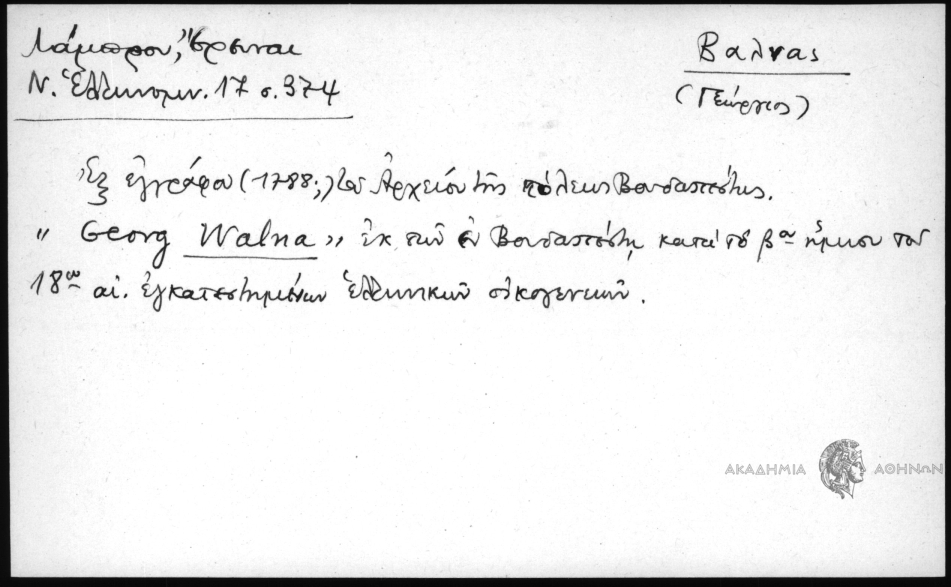 Λάμπρου, Ἔρευναι
Ν. Ἑλληνομν. 17 σ. 374
Βαλνας
(Γεώργιος)
Ἐξ ἐγγράφου (1788;) τοῦ Ἀρχείου τῆς πόλεως Βουδαπέστης.
" Georg Walna " ἐκ τῶν ἐν Βουδαπέστῃ κατὰ τὸ βον ἥμισυ τοῦ
18ου αἰ. ἐγκατεστημένων ἑλληνικῶν οἰκογενειῶν.
ΑΚΑΔΗΜΙΑ ΑΘΗΝΩΝ